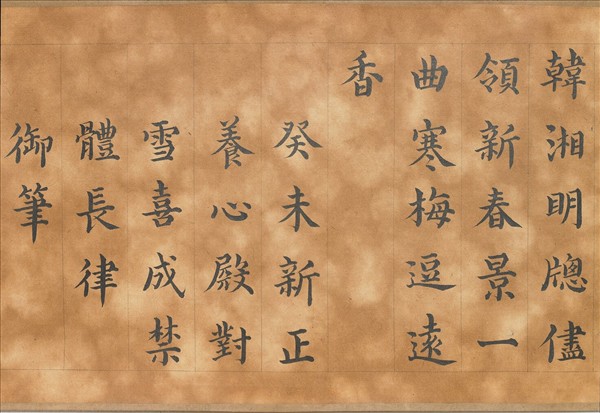 韓湘明牎儘
領新春景一
曲寒梅逗遠
香
癸未新正
養心殿對
雪喜成禁
體長律
御筆